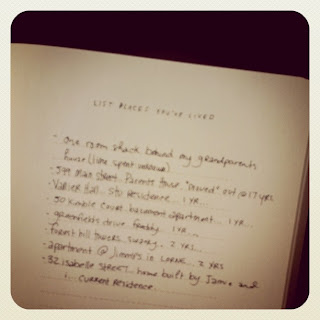 LIST PLACES YOU'VE LIVED
- one room shack behind my grandparents
house (time spent unknown)
- 599 Main street. Parents House. "Moved" out @ 17 yrs
- Vallier Hall. STU Residence... 1 YR...
- 50 Kimble Court. basement apartment... 1 YR...
- greenfields drive. freddy... 1 YR...
- forest hill towers. ... 2 YRS...
- apartment @ Jimmy's in ... 2 YRS
- 32 Isabelle STREET. home built by Jamie and
I... CURRENT Residence.